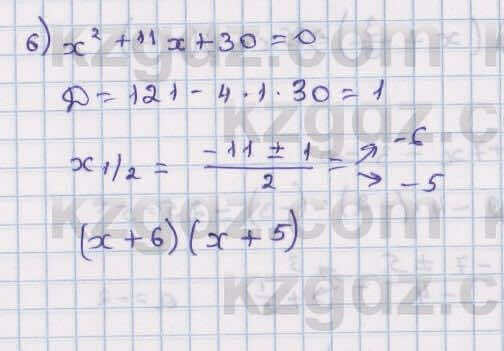 б) x² + 11x + 30 = 0
D = 121 - 4 · 1 · 30 = 1
x 1/2 = (-11 ± 1)/2 = ↗ -6 ↘ -5
(x + 6) (x + 5)
kzgdz.com